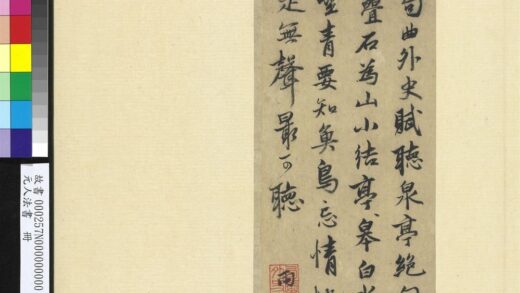 句曲外史賦聽泉亭絕句
疊石為山小結亭皋白
青要知魚鳥忘情
是無聲最可聽
雨
故書 000257N000000000
元人法書 冊